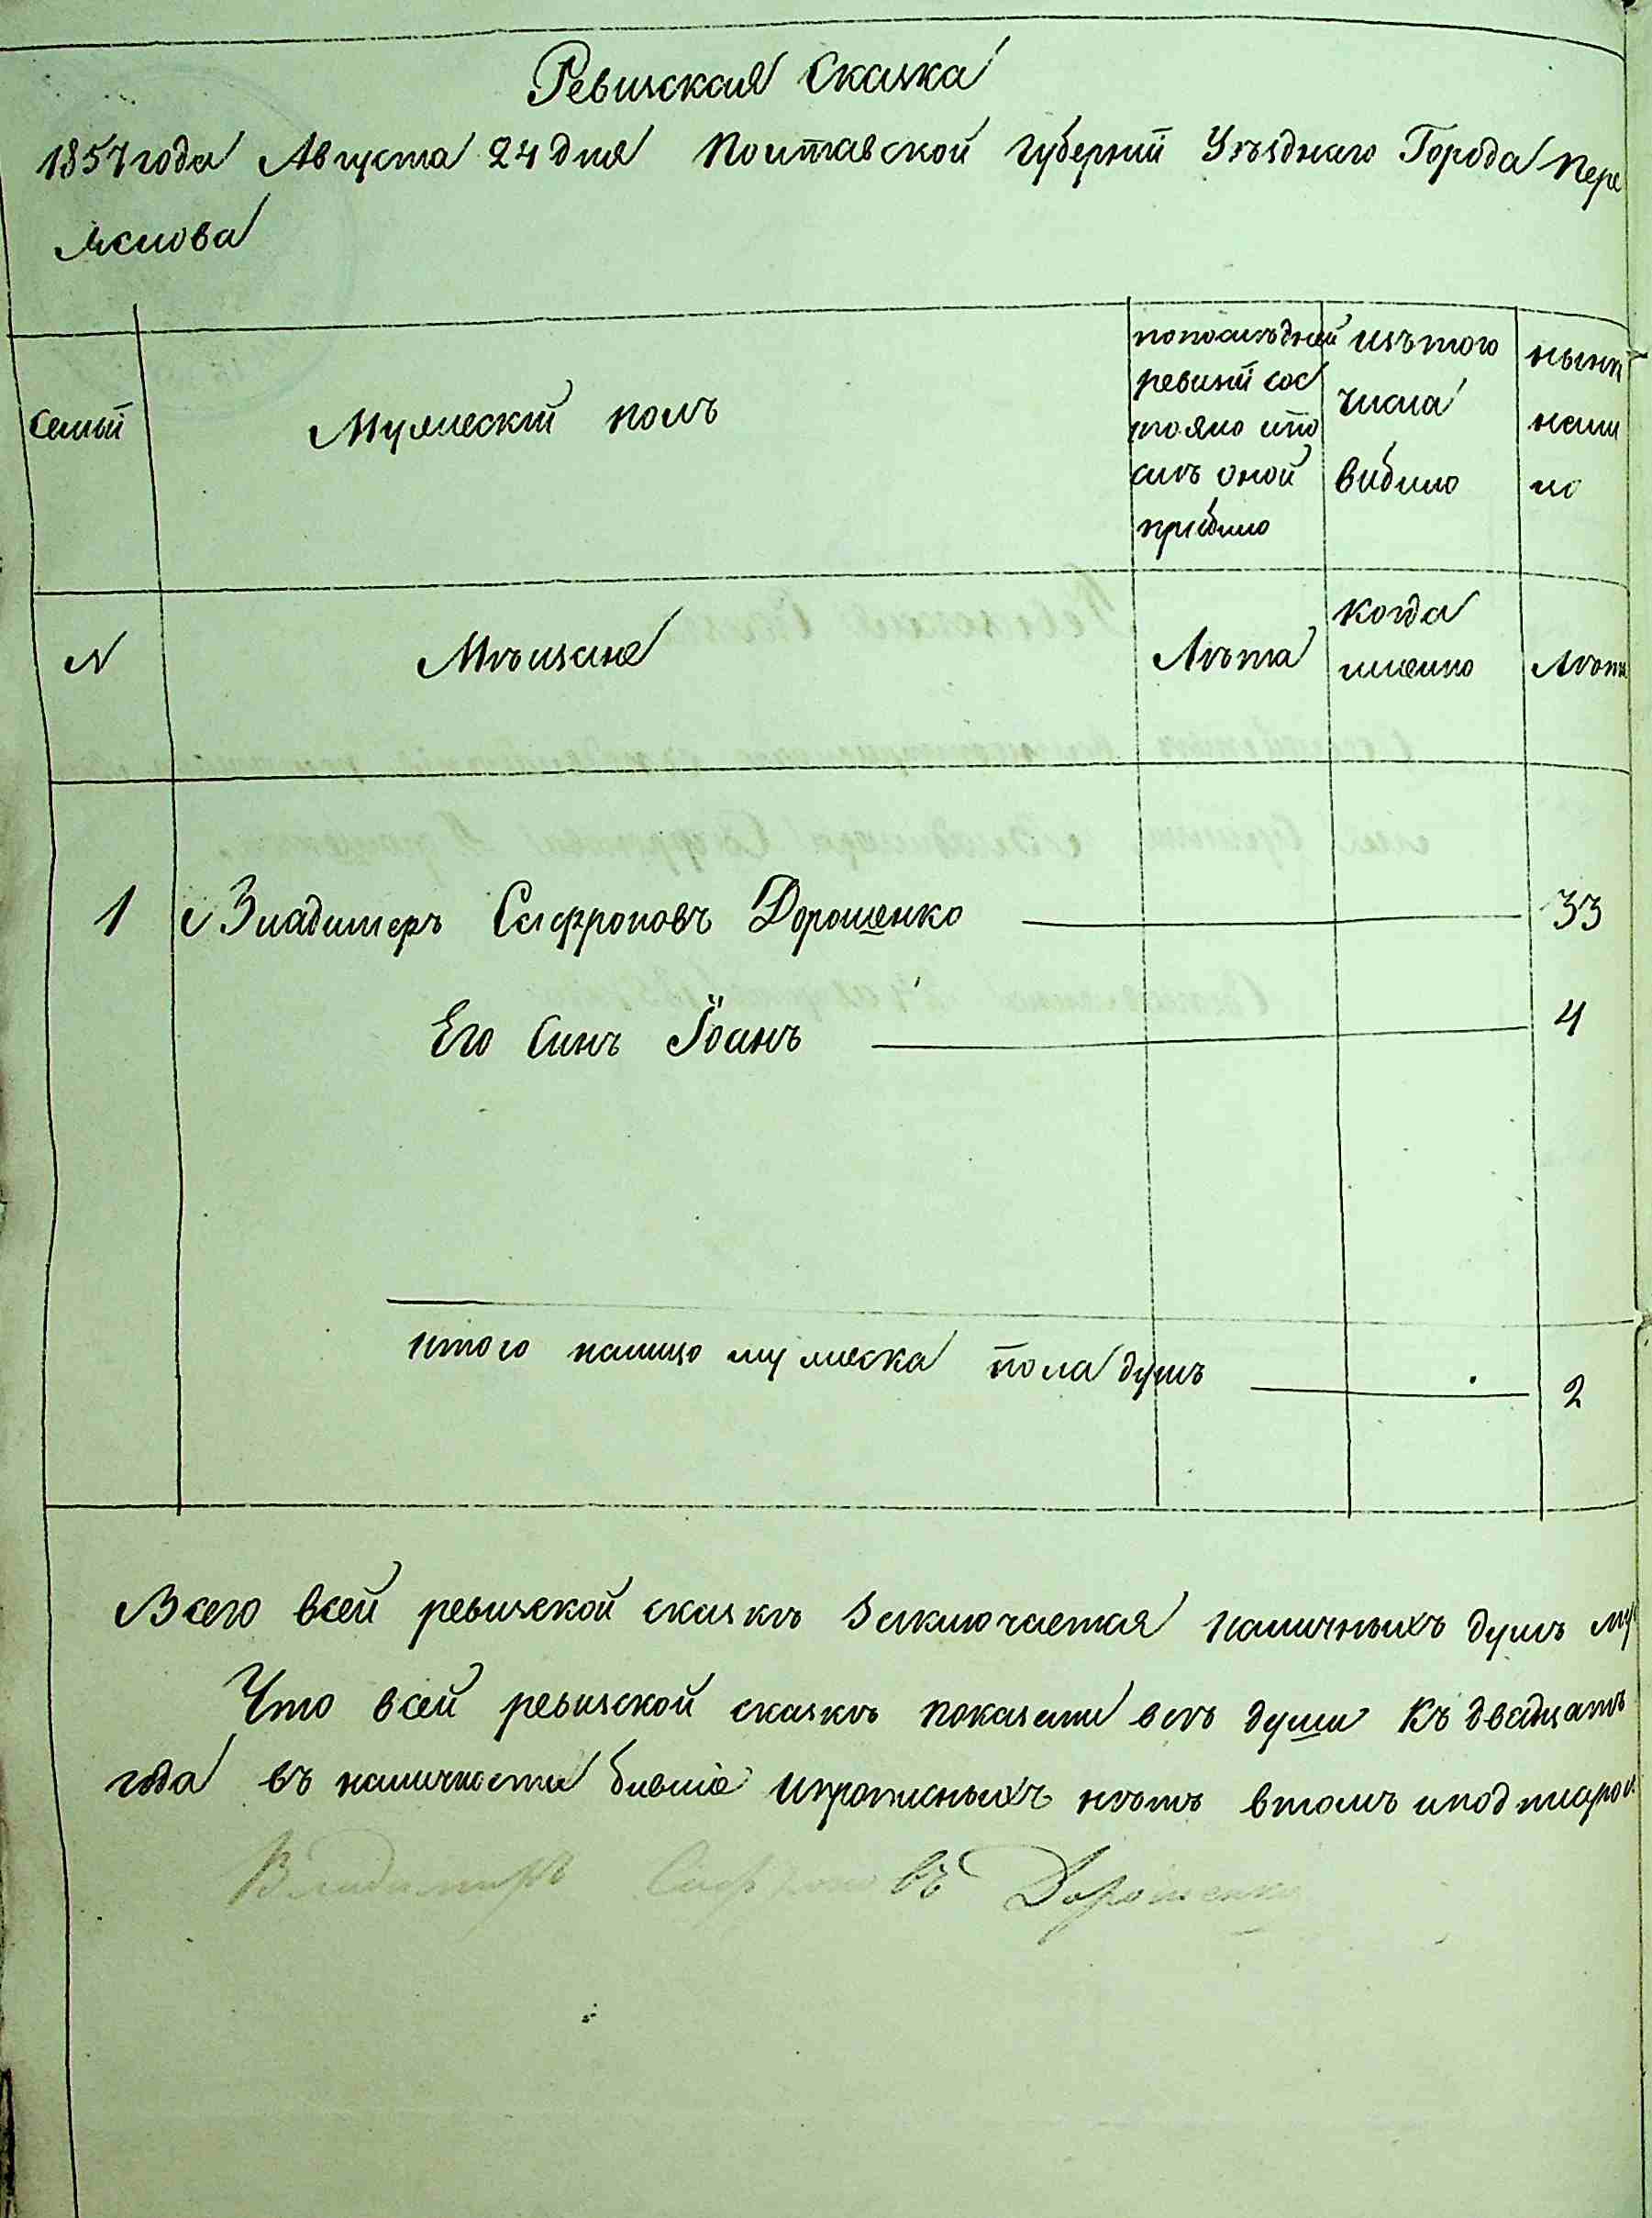 Ревизская Сказка
1857 года Августа 24 дня Полтавской губерніи Уѣзднаго Города Пере
Яслова
Семьи
Мужескій полъ
попослѣдней
ревизіи сос
тояло ипо
слѣ оной
прибило
изътого
числа
вибило
нынѣ
нали
ло
N
Мѣщане
Лѣта
когда
именно
Лѣта
1 Владимеръ Сафроновъ Дорошенко 33
Его Синъ Іоанъ 4
итого налицо мужеска пола душъ 2
Всего всей ревизской сказкѣ Заключается наличныхъ душъ му
Что всей ревизской сказкѣ показани всѣ души Къ двадцать
года въ наличности бившіе ипрописныхъ нѣтъ втомъ иподписую
Владимиръ Сафроновъ Дорошенко